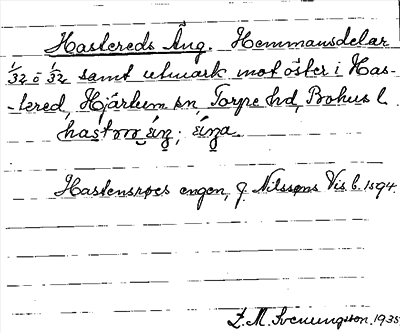 Hastereds Äng. Hemmansdelar
1/32 o 1/32 samt utmark mot öster i Has-
-tered, Hjärtum sn Torpe hd, Bohus l.
Hastensröes engen, J. Nilssons Vis. b. 1594.
E. M. Svenungsson. 1935